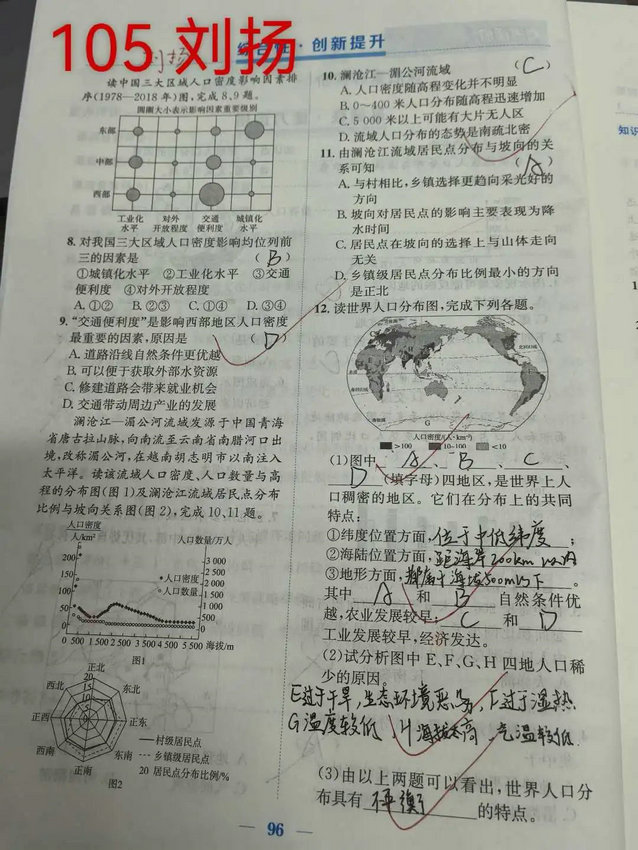 105 刘扬
刘扬
综合性·创新提升
读中国三大区域人口密度影响因素排
序(1978—2018年)图,完成8、9题。
圆圈大小表示影响因素重要级别
东部
中部
西部
工业化 对外 交通 城镇化
水平 开放程度 便利度 水平
8. 对我国三大区域人口密度影响均位列前
三的因素是 ( B )
①城镇化水平 ②工业化水平 ③交通
便利度 ④对外开放程度
A. ①② B. ②③ C. ①④ D. ③④
9. “交通便利度”是影响西部地区人口密度
最重要的因素,原因是 ( D )
A. 道路沿线自然条件更优越
B. 可以便于获取外部水资源
C. 修建道路会带来就业机会
D. 交通带动周边产业的发展
澜沧江—湄公河流域发源于中国青海
省唐古拉山脉,向南流至云南省南腊河口出
境,改称湄公河,在越南胡志明市以南注入
太平洋。读该流域人口密度、人口数量与高
程的分布图(图1)及澜沧江流域居民点分布
比例与坡向关系图(图2),完成10、11题。
人口密度
人/km² 人口数量/万人
200
150
100
50
0
3 000
2 500
2 000
1 500
1 000
500
0
人口密度
人口数量
500 1 500 2 500 3 500 4 500 5 500 海拔/m
图1
正北
东北
正东
东南
正南
西南
正西
西北
20
15
10
5
0
村级居民点
乡镇居民点
20 居民点分布比例/%
图2
10. 澜沧江—湄公河流域 ( C )
A. 人口密度随高程变化并不明显
B. 0~400米人口分布随高程迅速增加
C. 5 000米以上可能有大片无人区
D. 流域人口分布的态势是南疏北密
11. 由澜沧江流域居民点分布与坡向的关
系可知 ( A )
A. 与村相比,乡镇选择更趋向采光好的
方向
B. 坡向对居民点的影响主要表现为降
水时间
C. 居民点在坡向的选择上与山体走向
无关
D. 乡镇级居民点分布比例最小的方向
是正北
12. 读世界人口分布图,完成下列各题。
人口密度/(人·km⁻²)
>100 10~100 <10
(1)图中 A 、 B 、 C 、
D (填字母)四地区,是世界上人
口稠密的地区。它们在分布上的共同
特点:
①纬度位置方面,位于中低纬度;
②海陆位置方面,距海岸200km以内
③地形方面,都属于海拔500m以下。
其中 A 和 B 自然条件优
越,农业发展较早; C 和 D
工业发展较早,经济发达。
(2)试分析图中E、F、G、H四地人口稀
少的原因。
E过于干旱,生态环境恶劣,F过于湿热
G温度较低 H海拔太高,气温较低
(3)由以上两题可以看出,世界人口分
布具有 不平衡 的特点。
96